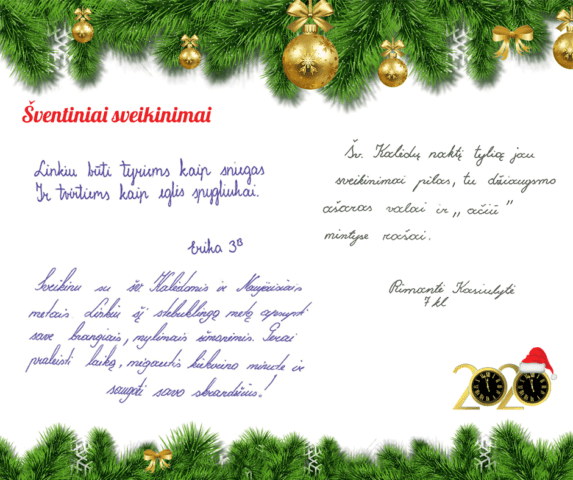 Šventiniai sveikinimai
Linkiu būti tyriems kaip sniegas
Ir tvirtiems kaip eglės spygliukai.
Erika 3ᴮ
Sveikinu su šv. Kalėdomis ir Naujaisiais
metais. Linkiu šį stebuklingą metą apsupti
save brangiais, mylimais žmonėmis. Gerai
praleisti laiką, mėgautis kiekviena minute ir
saugoti savo skrandžius!
Šv. Kalėdų naktį tylią jau
sveikinimai pilas, tu džiaugsmo
ašaras valai ir „ačiū"
mintyse rašai.
Rimantė Kasiulytė
7 kl.
2020